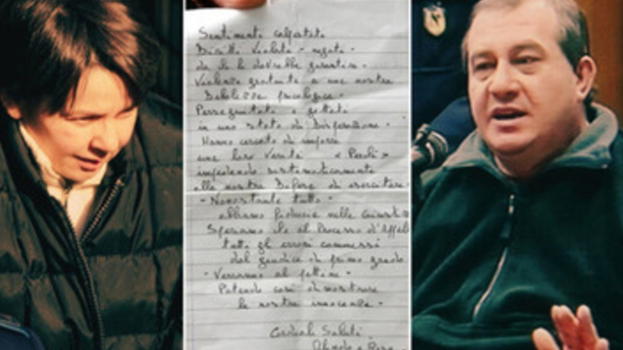 Sentimenti calpestati
Diritti Violati - negati -
da chi li dovrebbe garantire -
Violenze gratuite a una nostra
Debolezza psicologica -
Perseguitati e gettati
in uno stato di Disperazione -
Hanno cercato di imporre
una loro Verità
impedendo sistematicamente
alla nostra Difesa di esercitare -
- Nonostante tutto -
abbiamo fiducia nella Giustizia
Speriamo che al Processo d'Appello
tutti gli errori commessi
dal giudice di primo grado -
- Verranno al pettine -
Potendo così dimostrare
la nostra innocenza -
Cordiali Saluti
Olindo e Rosa